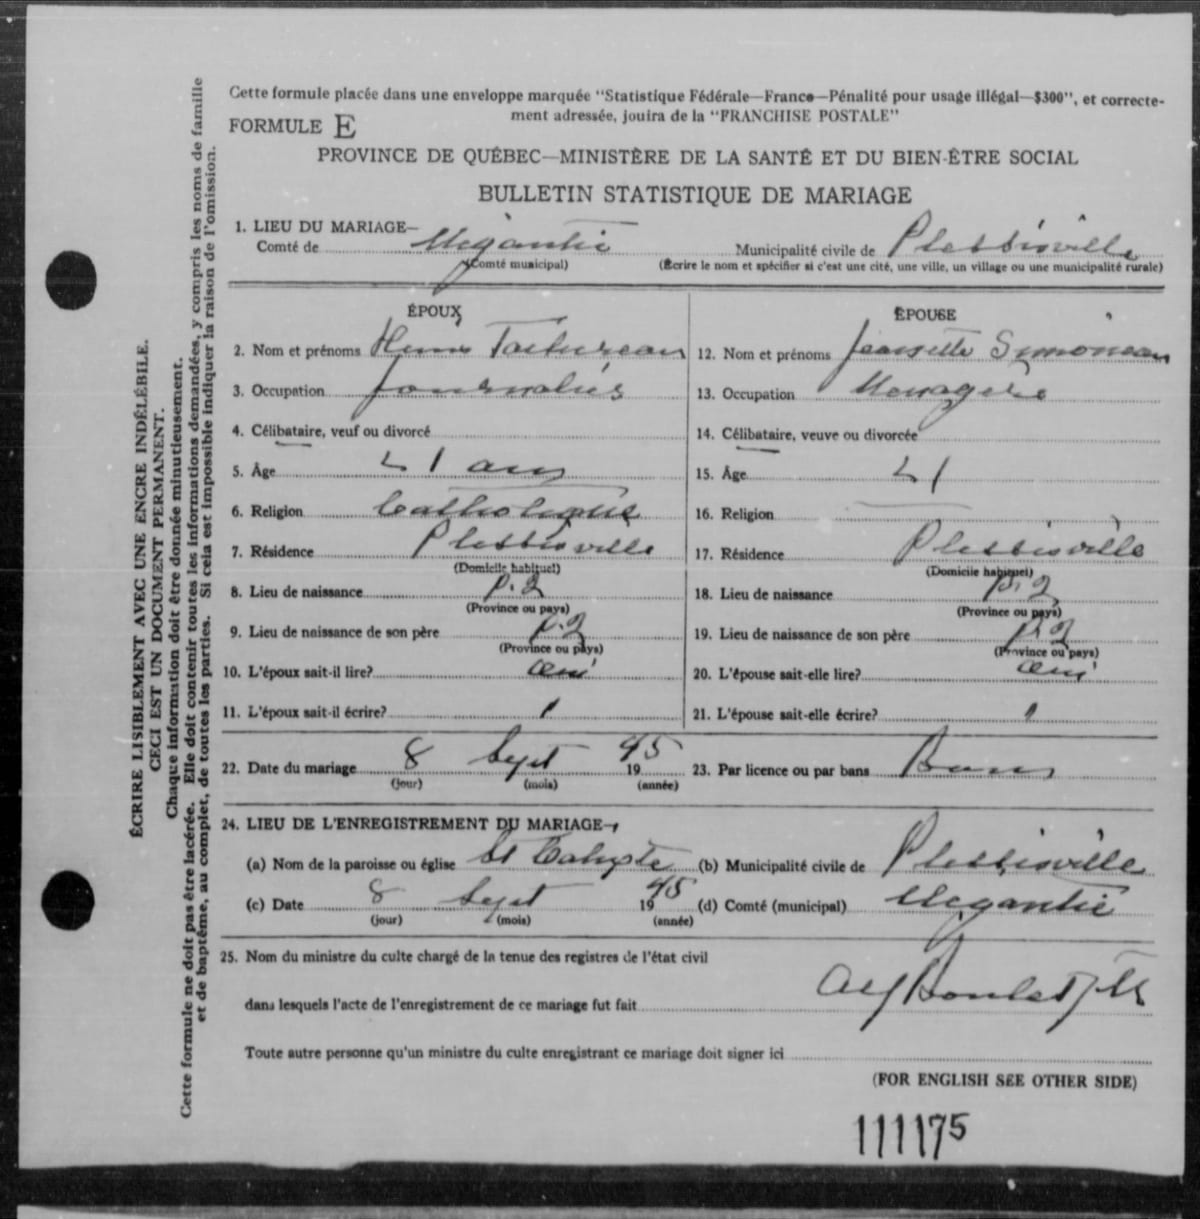 Cette formule placée dans une enveloppe marquée "Statistique Fédérale—France—Pénalité pour usage illégal—$300", et correcte-
ment adressée, jouira de la "FRANCHISE POSTALE"
FORMULE E
PROVINCE DE QUÉBEC—MINISTÈRE DE LA SANTÉ ET DU BIEN-ÊTRE SOCIAL
BULLETIN STATISTIQUE DE MARIAGE
1. LIEU DU MARIAGE—
Comté de Mégantic Municipalité civile de Plessisville
(Comté municipal) (Écrire le nom et spécifier si c'est une cité, une ville, un village ou une municipalité rurale)
ÉPOUX
2. Nom et prénoms Henri
3. Occupation Journalier
4. Célibataire, veuf ou divorcé
5. Âge 21 ans
6. Religion Catholique
7. Résidence Plessisville
(Domicile habituel)
8. Lieu de naissance P.Q
(Province ou pays)
9. Lieu de naissance de son père P.Q
(Province ou pays)
10. L'époux sait-il lire? oui
11. L'époux sait-il écrire? "
ÉPOUSE
12. Nom et prénoms Jeannette Simoneau
13. Occupation Menagère
14. Célibataire, veuve ou divorcée
15. Âge 21
16. Religion
17. Résidence Plessisville
(Domicile habituel)
18. Lieu de naissance P.Q
(Province ou pays)
19. Lieu de naissance de son père P.Q
(Province ou pays)
20. L'épouse sait-elle lire? oui
21. L'épouse sait-elle écrire? "
22. Date du mariage 8 Sept 1945 23. Par licence ou par bans Bans
(jour) (mois) (année)
24. LIEU DE L'ENREGISTREMENT DU MARIAGE—
(a) Nom de la paroisse ou église St Calixte (b) Municipalité civile de Plessisville
(c) Date 8 Sept 1945 (d) Comté (municipal) Mégantic
(jour) (mois) (année)
25. Nom du ministre du culte chargé de la tenue des registres de l'état civil
dans lesquels l'acte de l'enregistrement de ce mariage fut fait Alf Boulet
Toute autre personne qu'un ministre du culte enregistrant ce mariage doit signer ici
(FOR ENGLISH SEE OTHER SIDE)
111175
ÉCRIRE LISIBLEMENT AVEC UNE ENCRE INDÉLÉBILE.
CECI EST UN DOCUMENT PERMANENT.
Chaque information doit être donnée minutieusement.
Cette formule ne doit pas être lacérée. Elle doit contenir toutes les informations demandées, y compris les noms de famille
et de baptême, au complet, de toutes les parties. Si cela est impossible indiquer la raison de l'omission.